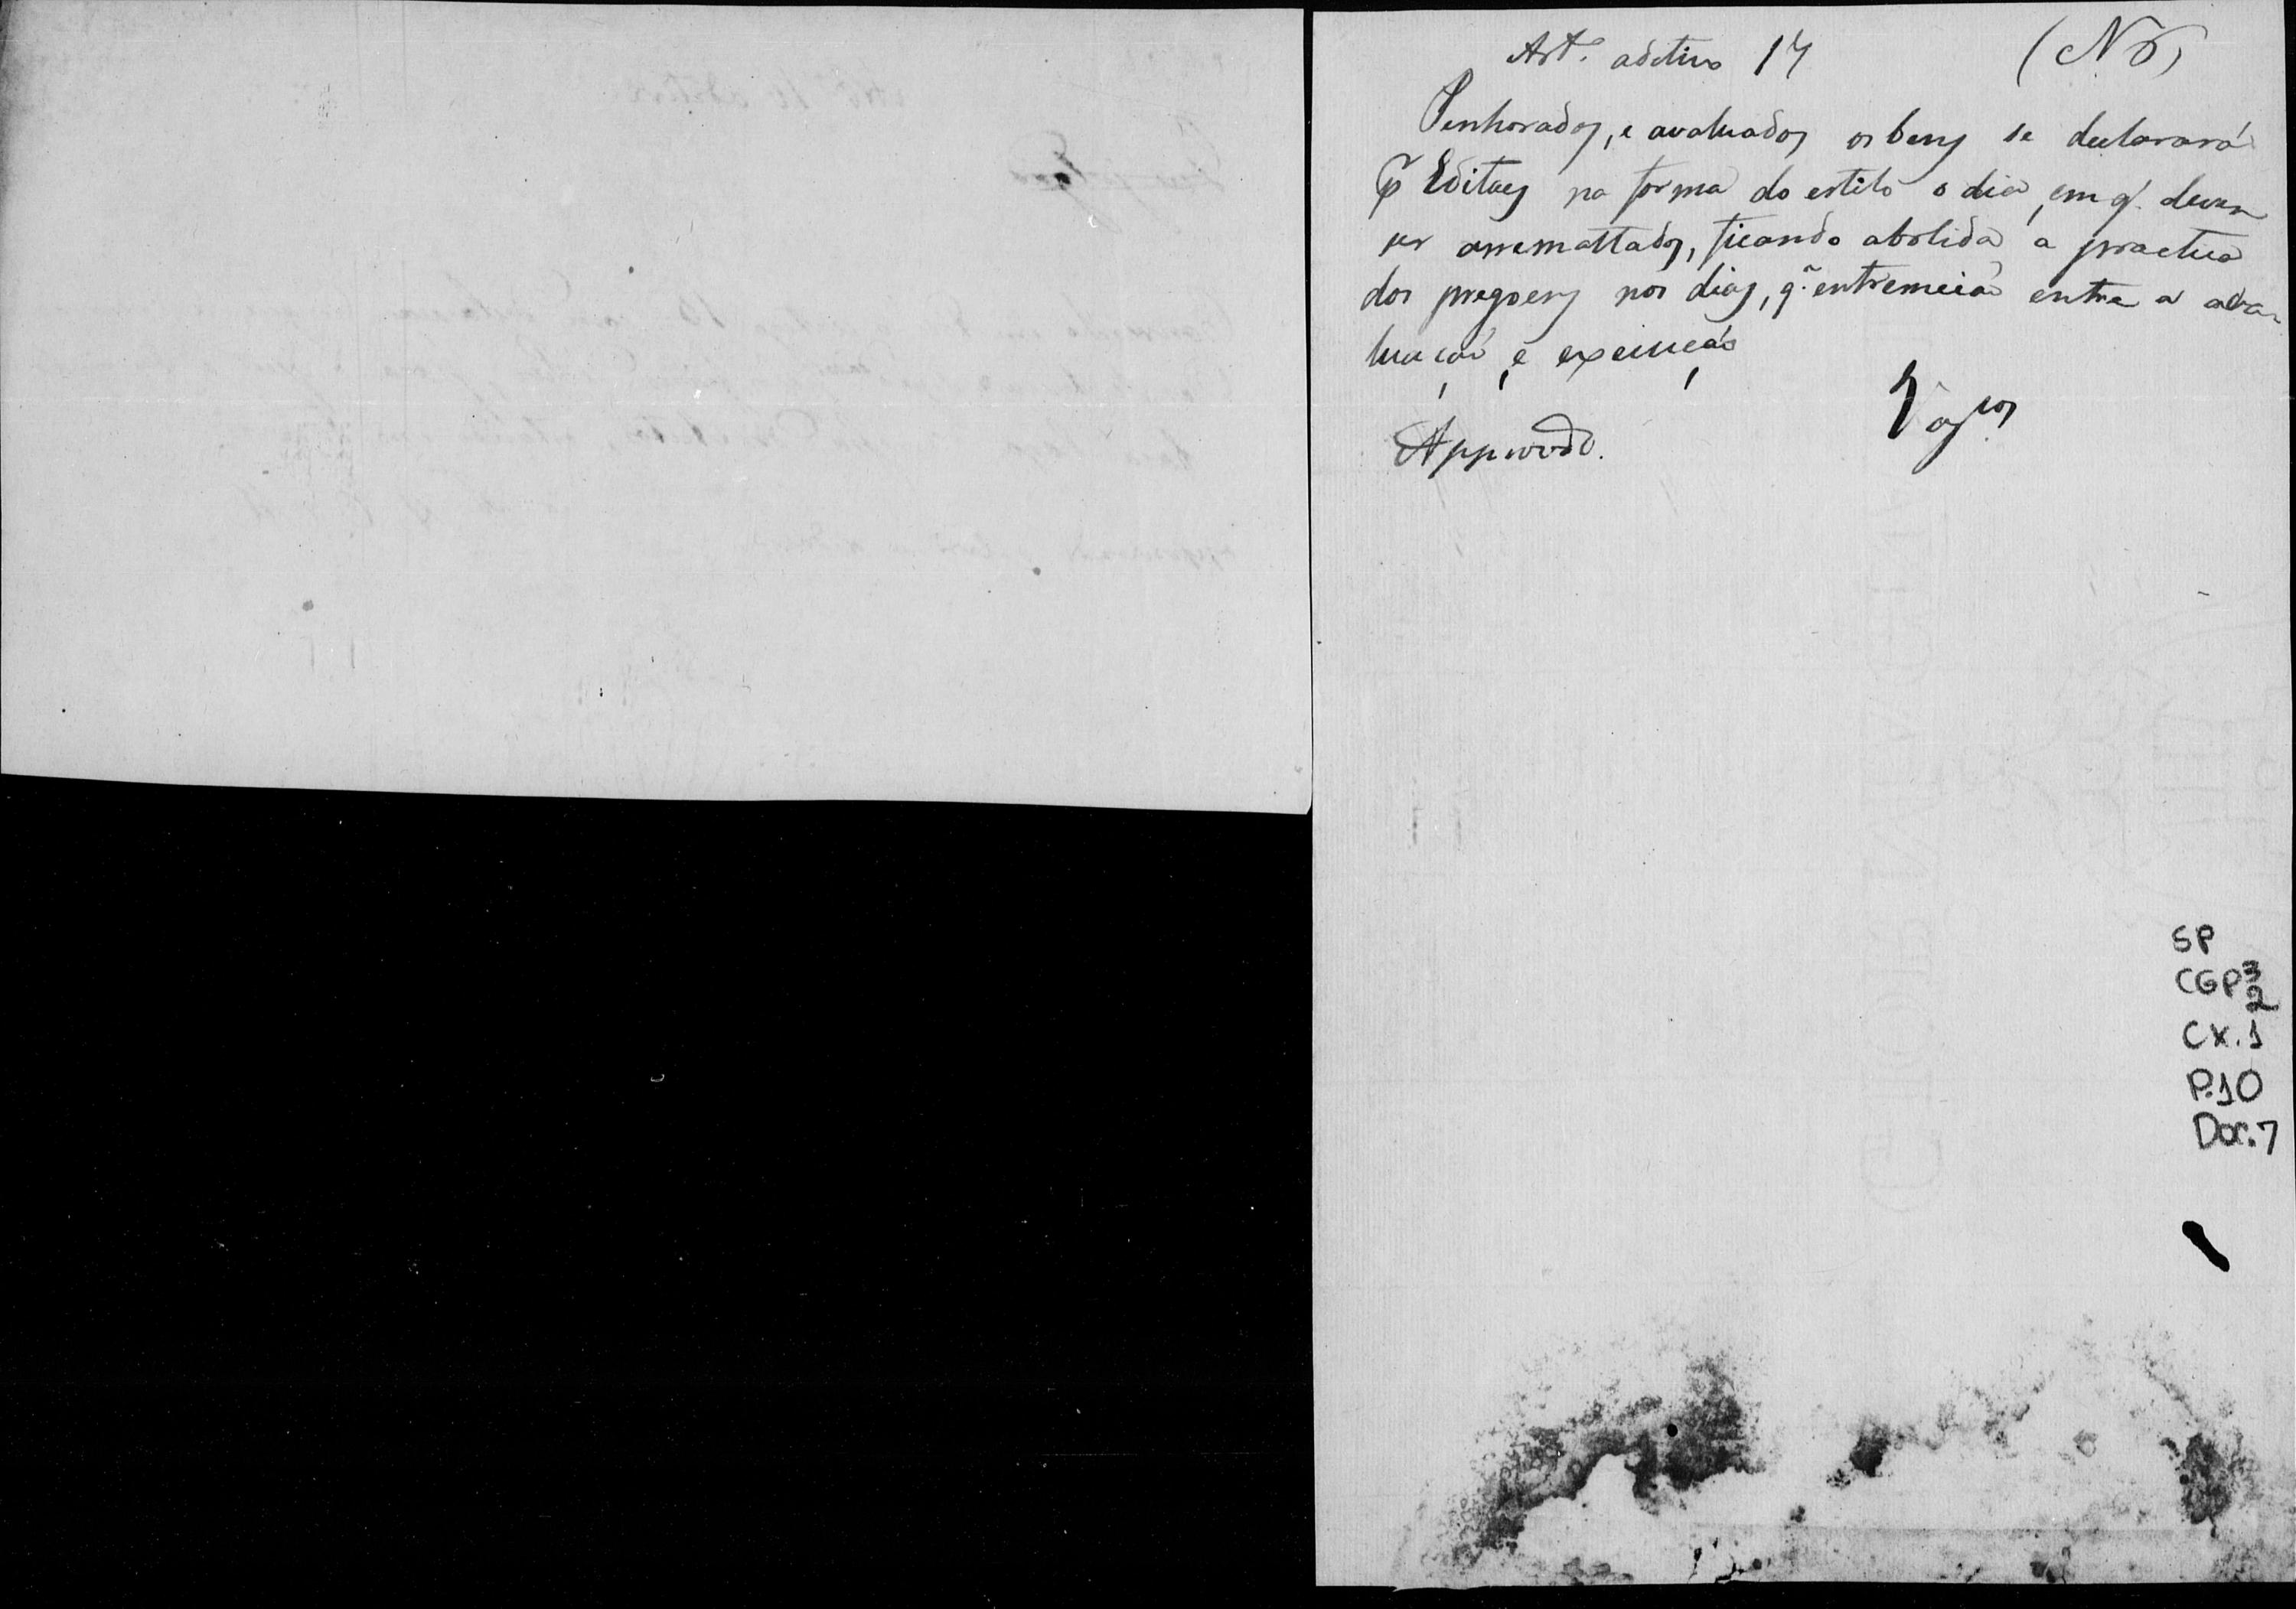 Art. aditivo 17 (N6)
Penhorados, e avaluados os bens se declarará
p Editaes na forma do estilo o dia, em q̃. devem
ser arremattados, ficando abolida a practica
dos pregoens nos dias, q̃ entremeião entre a ava-
luação, e execução
Approvado.
SP
CGP3
2
CX.1
P.10
Doc.7